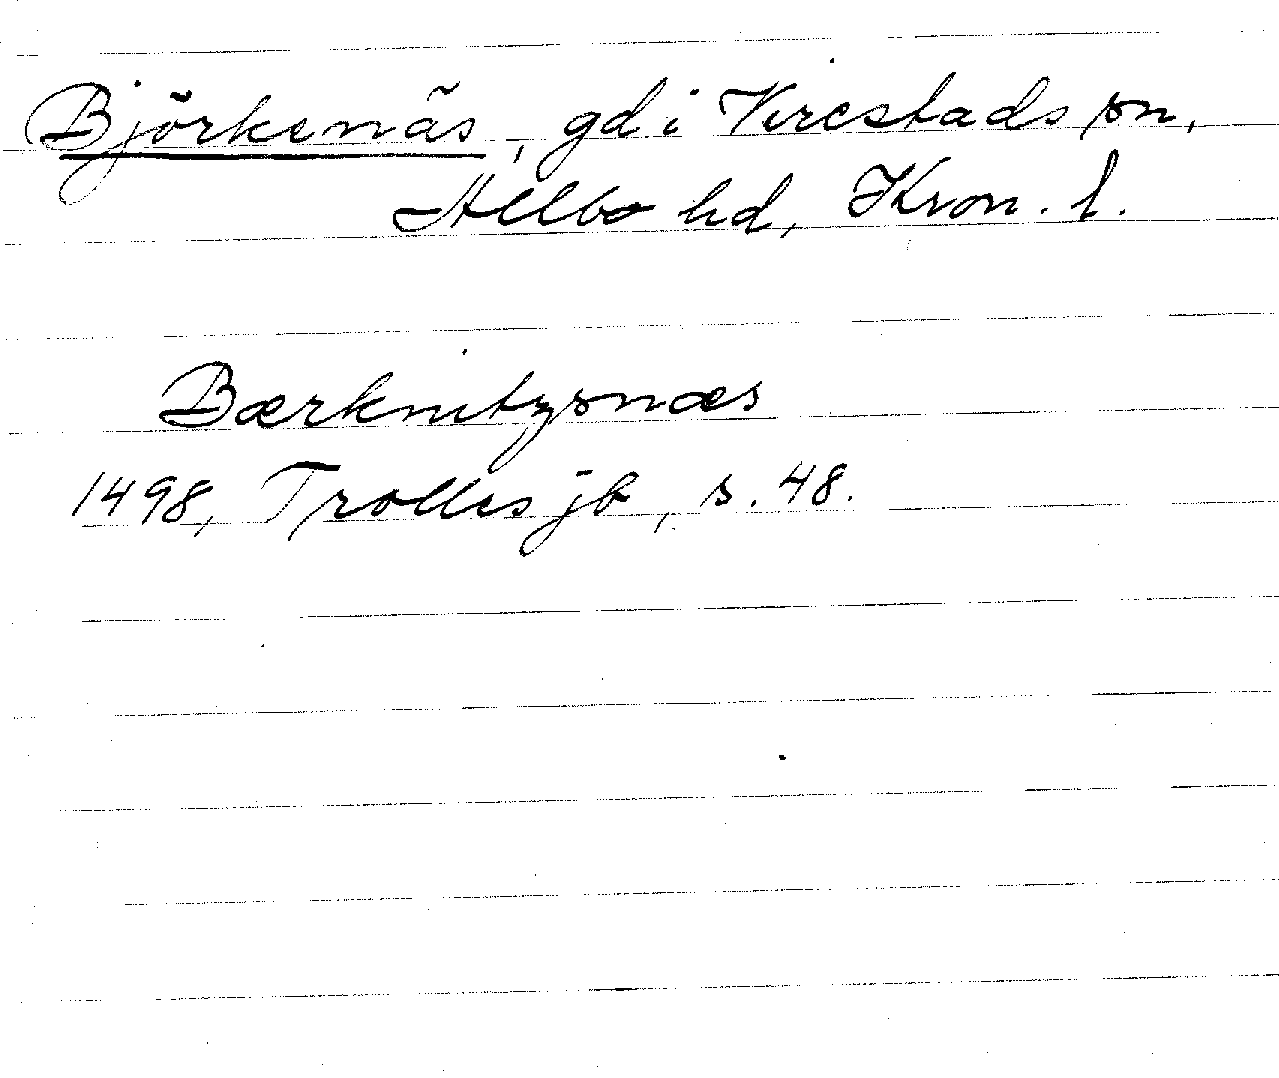 Björkenäs, gd i Virestads sn,
Allbo hd, Kron. l.
Bærknitzsnæs
1498, Trolles jb, s. 48.